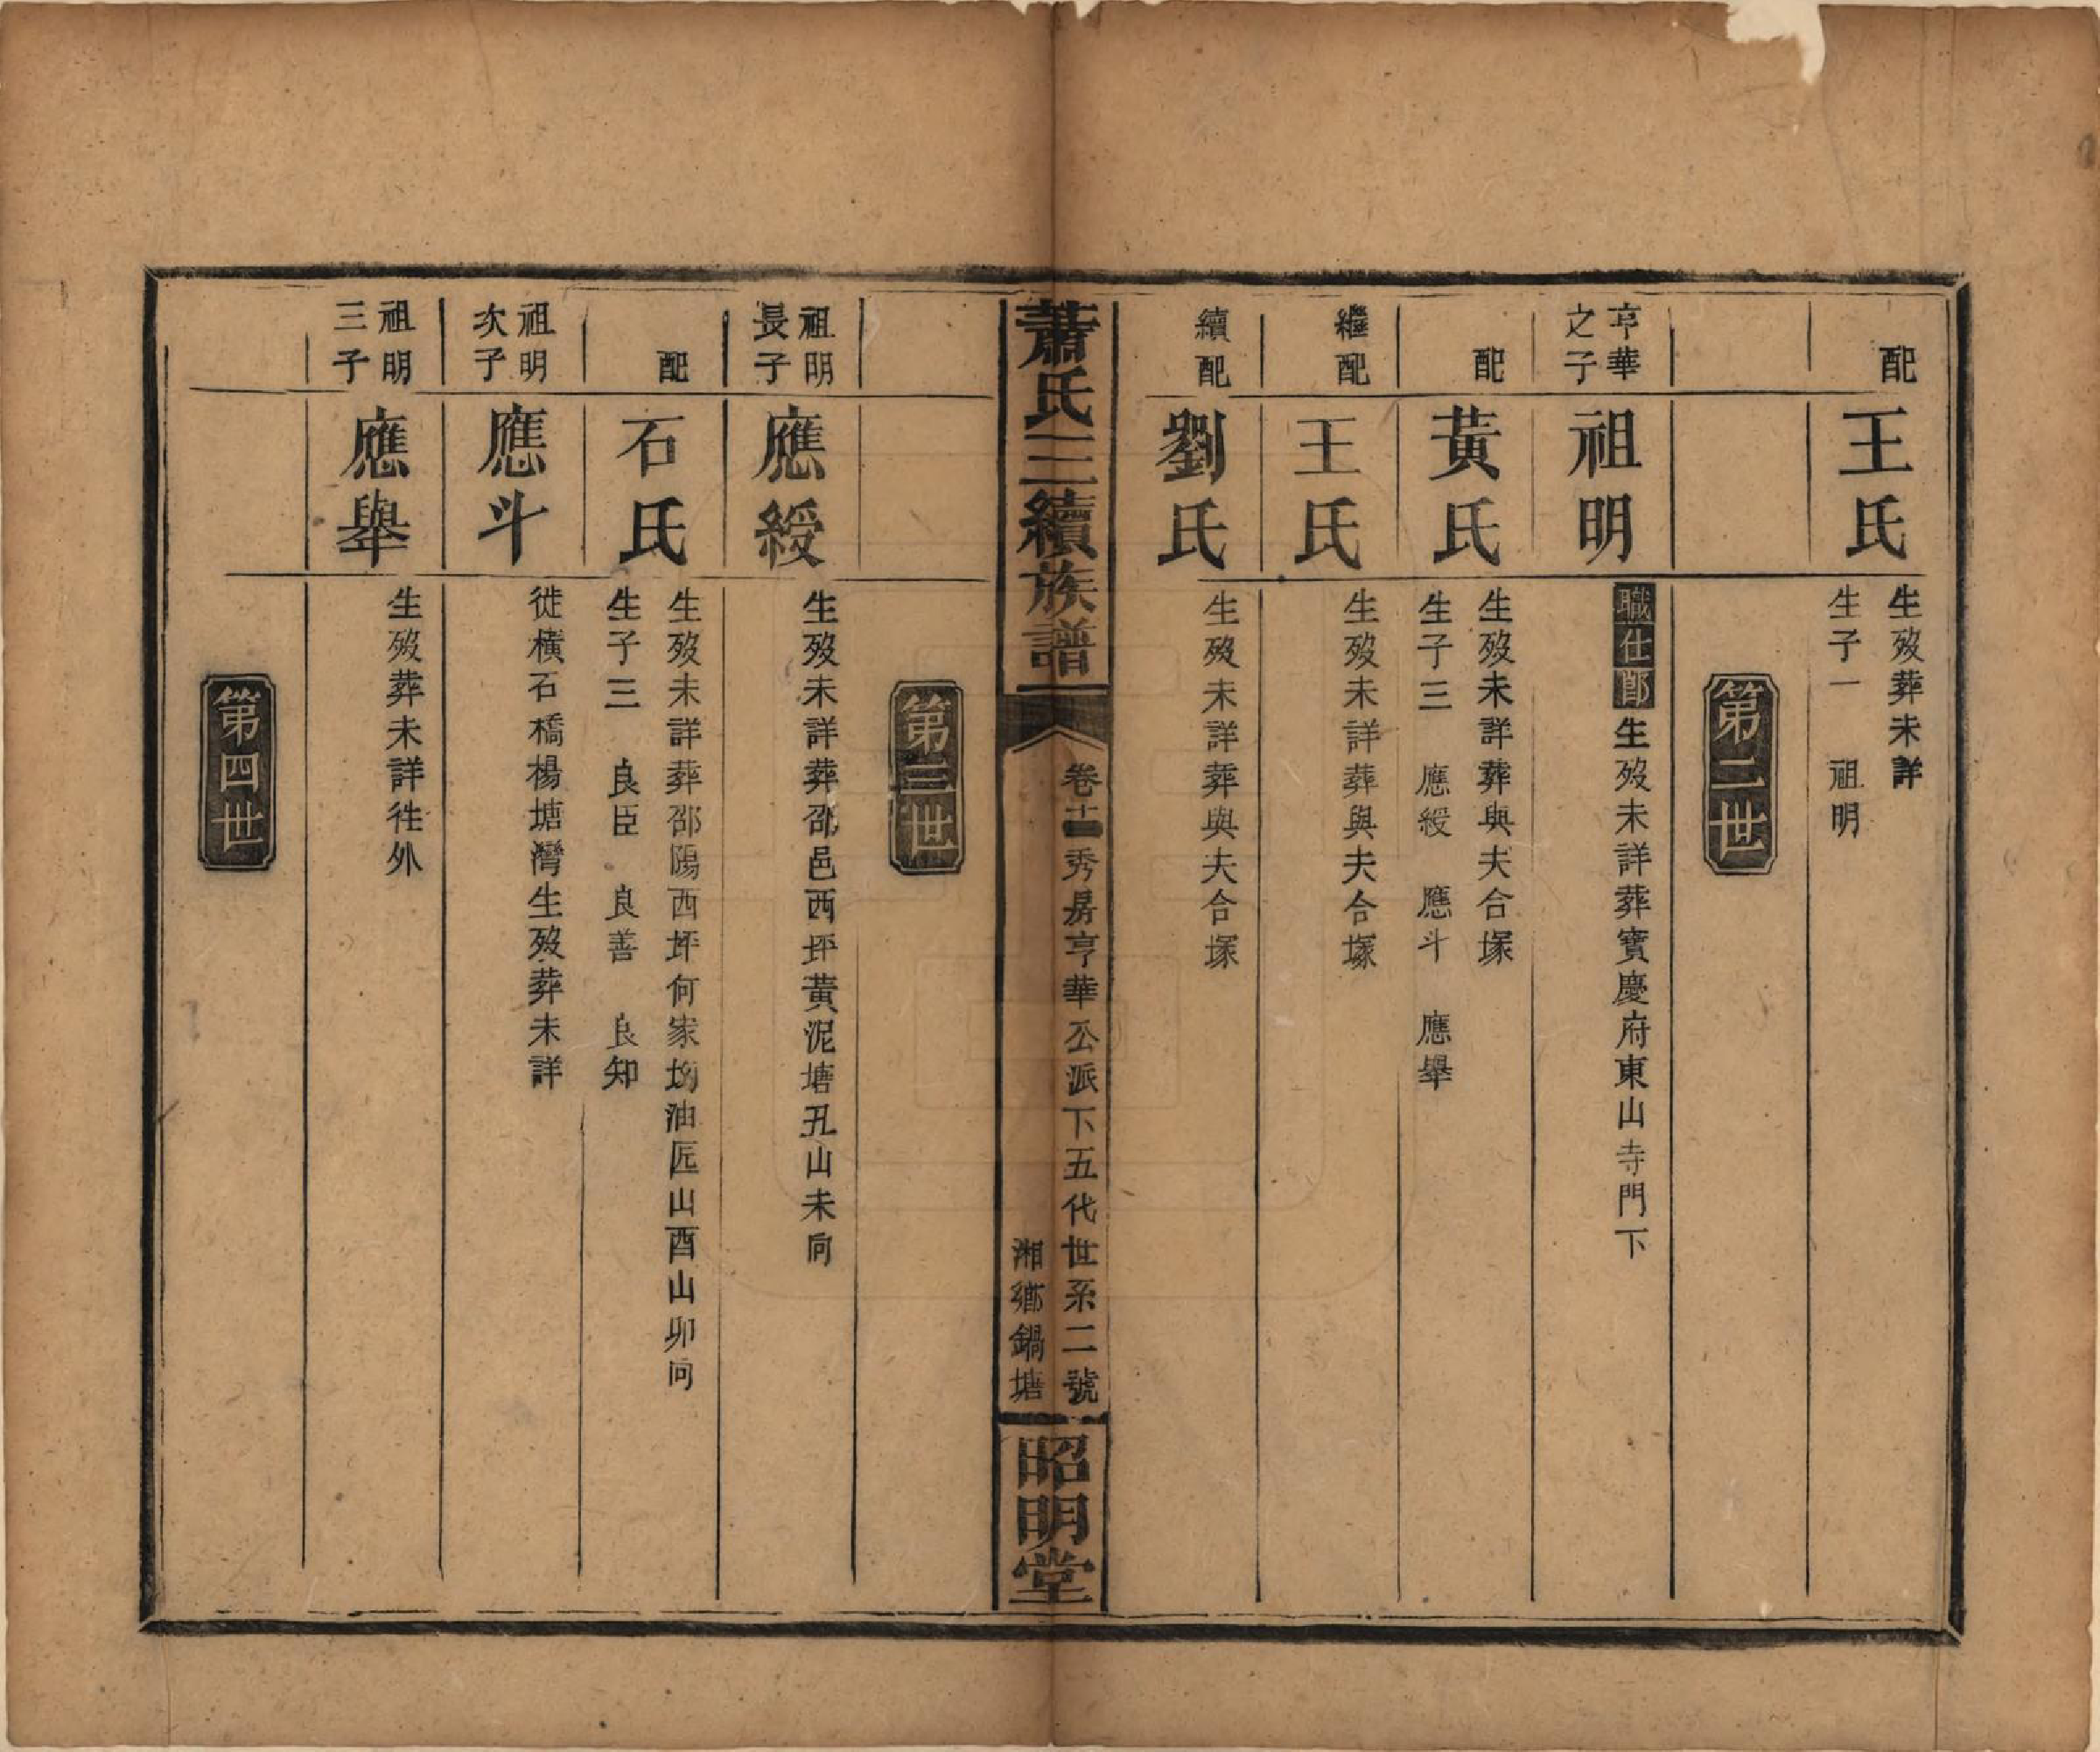 配
王氏
生歿葬未詳
生子一　祖明
第二世
亨華
之子
祖明
職仕郎生歿未詳葬寶慶府東山寺門下
配
黃氏
生歿未詳葬與夫合塚
生子三　應綬　應斗　應舉
繼配
王氏
生歿未詳葬與夫合塚
續配
劉氏
生歿未詳葬與夫合塚
蕭氏三續族譜
卷十一秀房亨華公派下五代世系二號
湘鄉鍋塘
昭明堂
第三世
祖明
長子
應綬
生歿未詳葬邵邑西坪黃泥塘丑山未向
配
石氏
生歿未詳葬邵陽西坪何家坳油匠山酉山卯向
生子三　良臣　良善　良知
祖明
次子
應斗
徙橫石橋楊塘灣生歿葬未詳
祖明
三子
應舉
生歿葬未詳徃外
第四世